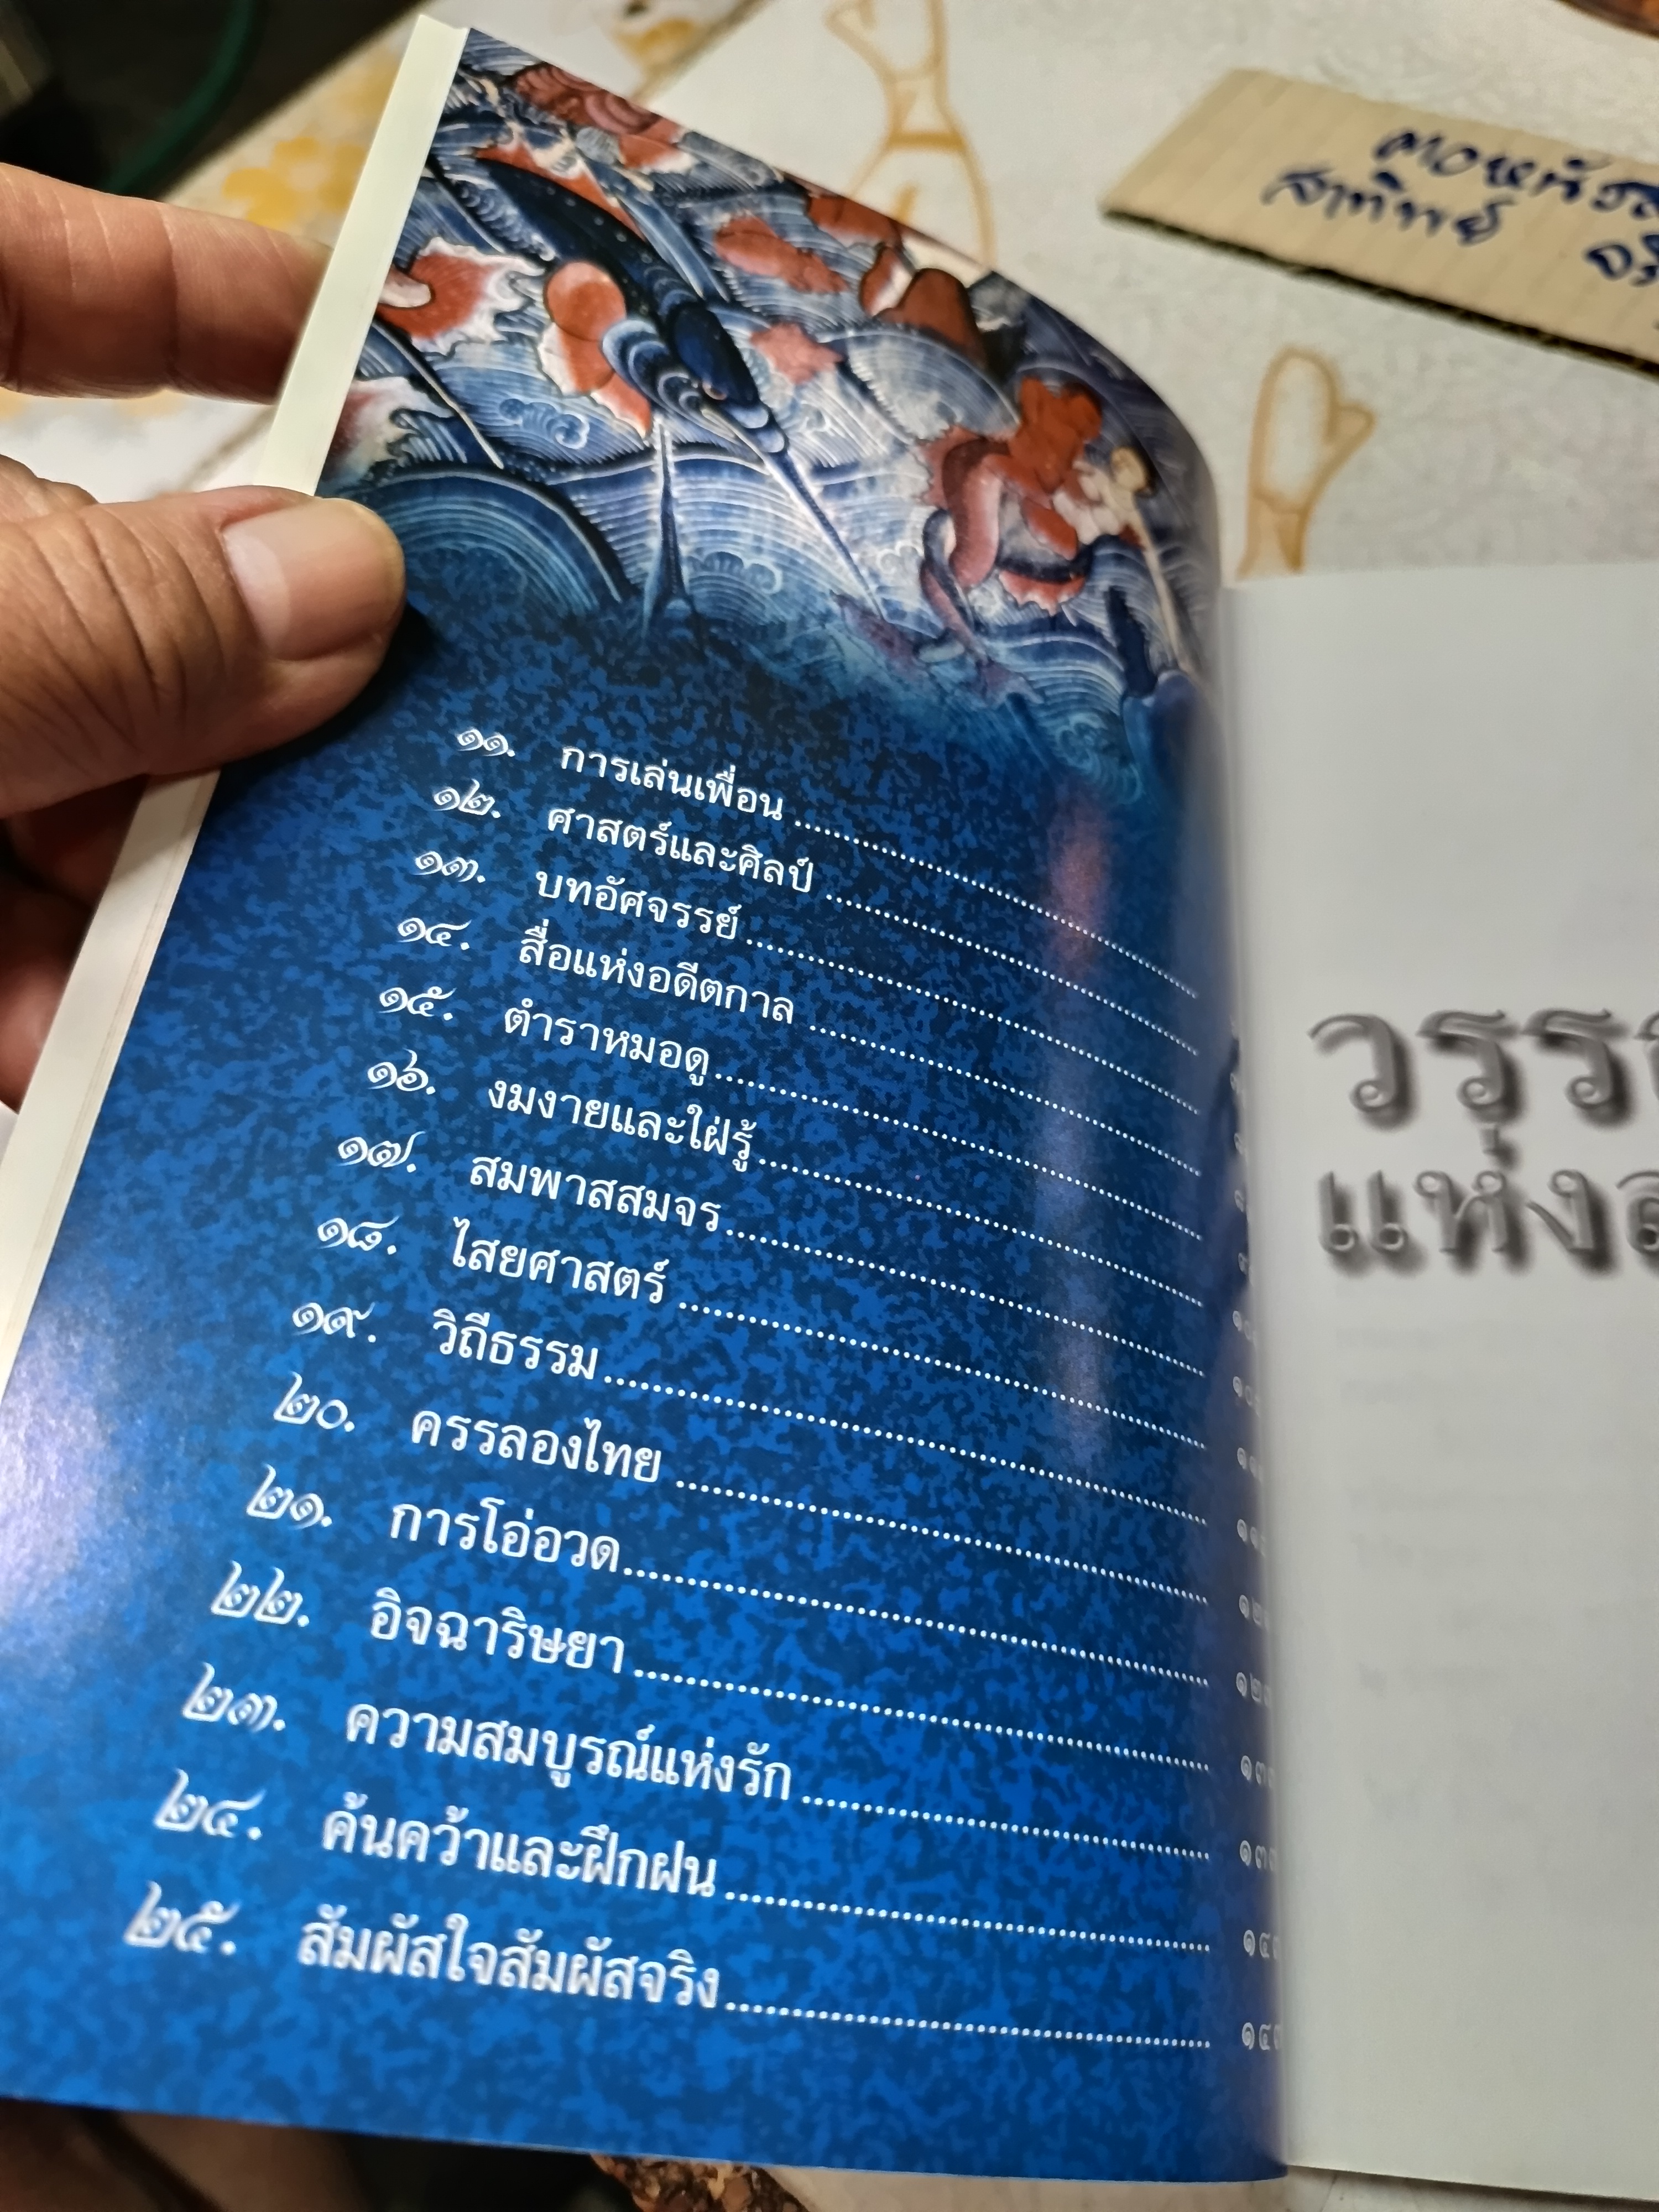 ๑๑. การเล่นเพื่อน
๑๒. ศาสตร์และศิลป์
๑๓. บทอัศจรรย์
๑๔. สื่อแห่งอดีตกาล
๑๕. ตำราหมอดู
๑๖. งมงายและใฝ่รู้
๑๗. สมพาสสมจร
๑๘. ไสยศาสตร์
๑๙. วิถีธรรม
๒๐. ครรลองไทย
๒๑. การโอ่อวด
๒๒. อิจฉาริษยา
๒๓. ความสมบูรณ์แห่งรัก
๒๔. ค้นคว้าและฝึกฝน
๒๕. สัมผัสใจสัมผัสจริง
วรร
แห่ง